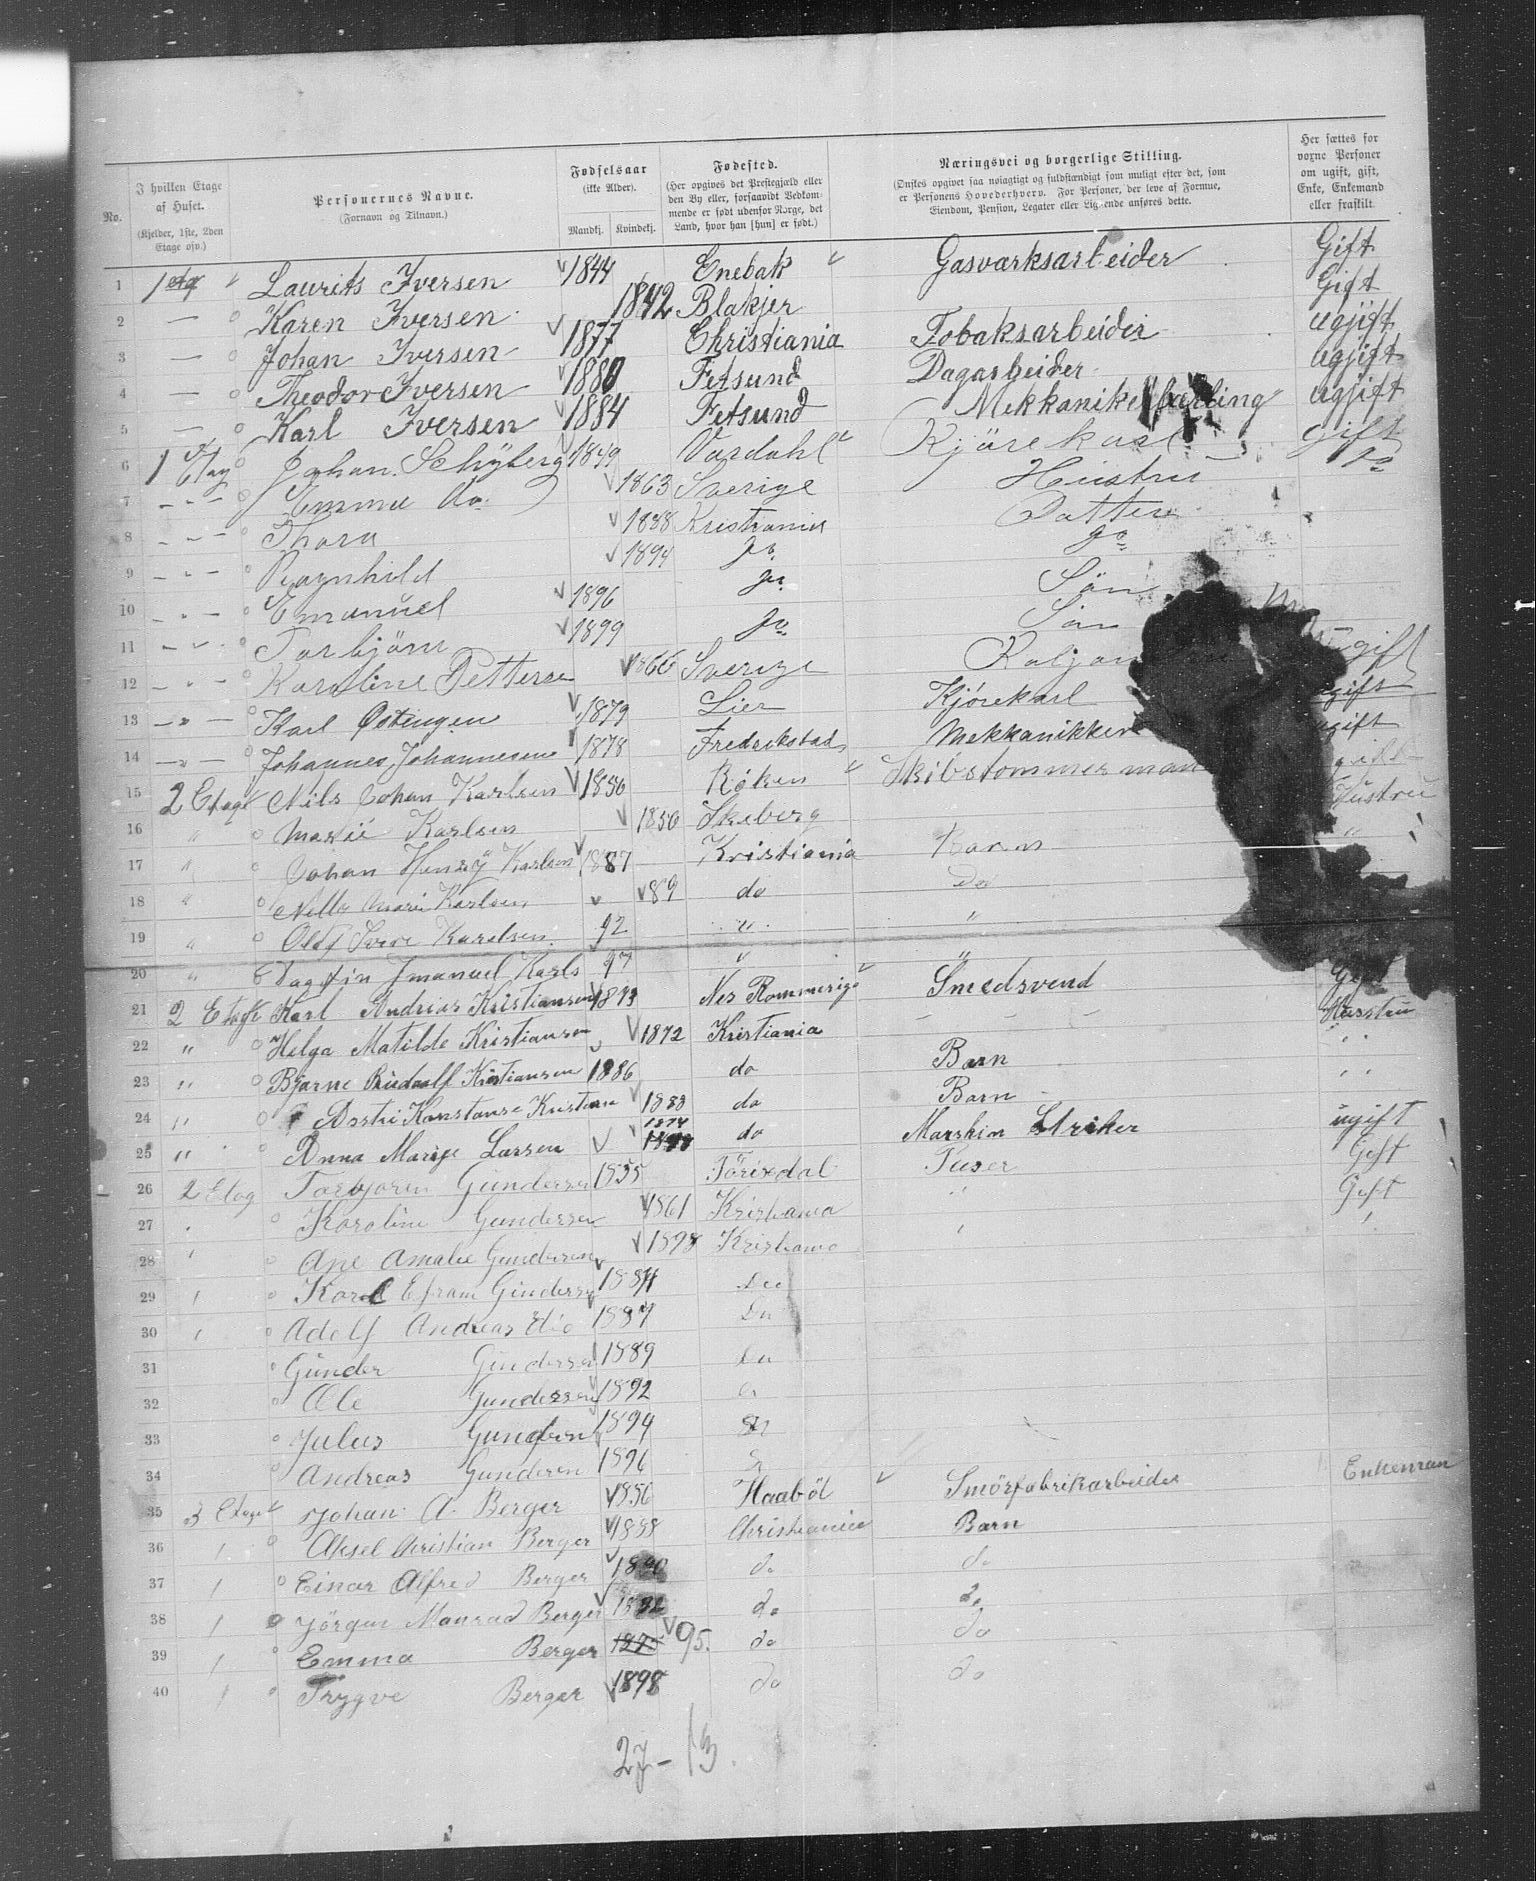 No.
I hvilken Etage af Huset.
(Kjelder, 1ste, 2den Etage osv.)
Personernes Navne.
(Fornavn og Tilnavn.)
Fødselsaar
(ikke Alder).
Mandkj. Kvindekj.
Fødested.
(Her opgives det Prestegjæld eller den By eller, forsaavidt Vedkommende er født udenfor Norge, det Land, hvor han [hun] er født.)
Næringsvei og borgerlige Stilling.
(Ønskes opgivet saa nøiagtigt og fuldstændigt som muligt efter det, som er Personens Hovederhverv. For Personer, der leve af Formue, Eiendom, Pension, Legater eller Lignende anføres dette.
Her sættes for voxne Personer om ugift, gift, Enke, Enkemand eller fraskilt.
1 1 etg " Laurits Iversen 1844 Enebak " Gasværksarbeider Gift
2 — Karen Iversen 1842 Blakjer Gift
3 — Johan Iversen 1877 Christiania Tobaksarbeider ugjift
4 — Theodor Iversen 1880 Fetsund Dagarbeider ugjift
5 — Karl Iversen 1884 Fetsund Mekkanikerlærling ugjift
6 1 Etag Johan Schyberg 1849 Vardahl " Kjörekarl gift
7 - " - Emma do. 1863 Sverige Hustru Do
8 - " - Thora 1888 Kristiania Datter
9 - " - Ragnhild 1894 Do Do
10 - " - Emanuel 1896 Do Sön
11 - " - Torbjörn 1899 Do Sön
12 - " - Karoline Petterse 1866 Sverige ugift
13 - " - Karl Østengen 1879 Lier Kjörekarl ugift
14 - " - Johannes Johannesen 1878 Fredrikstad Mekkanikker ugift
15 2 Etage Nils Johan Karlsen 1856 Röken " Skibstømmerman gift
16 " Marie Karlsen 1850 Skeberg Hustru
17 " Johan Henry Karlsen 1887 Kristiania Barn "
18 " Nelly Marie Karlsen 89 do do
19 " Olaf Karelsen 92 " "
20 " Dagfin Imanuel Karls 97 "
21 2 Etage Karl Andrias Kristiansen 1873 Nes Rommerige " Smedsvend Gift
22 " Helga Matilde Kristiansen 1872 Kristiania - - - Husstru
23 " Bjarne Rudolf Kristiansen 1886 do Barn " "
24 " Konstanse Kristian 1888 do Barn " "
25 " Anna Marie Larsen 1874 do Marskin Striker ugift
26 2 Etag Torbjoren Gundersen 1855 Tuser Gift
27 " Karoline Gundersen 1861 Kristiania " Gift
28 " Amalie Gundersen 1898 Kristiania " "
29 " Karl Efraim Gundersen 1884
30 " Adolf Andreas 1887
31 Gunder Gundersen 1889
32 Ole Gundersen 1892
33 Julius Gundersen 1894
34 Andreas Gundersen 1896
35 3 Etage Johan A. Berger 1856 Haaböl " Smörfabrikarbeider Enkeman
36 " Aksel Christian Berger 1888 Christiania Barn
37 " Einar Alfred Berger 1890 do do
38 " Jörgen Monrad Berger do do
39 " Emma Berger 1895 95. do do
40 " Trygve Berger 1898 do do
27 - 13.